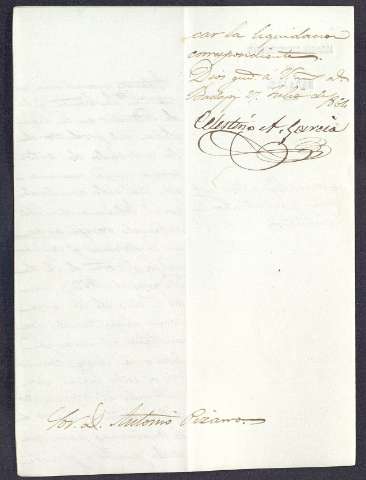 car la liquidacion
correspondiente.
Dios gue a V. m. a.
Badajoz 27 Julio de
Celestino A. Garcia
Sor. D. Antonio Pizarro.